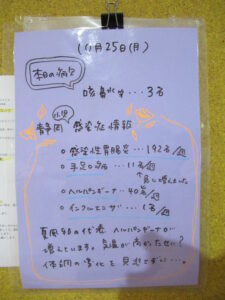 11月25日(月)
本日の病欠
咳鼻水・・・3名
小児
静岡 感染症情報
○感染性胃腸炎・・・192名/週
○手足口病・・・11名/週
↑急に増えました
○ヘルパンギーナ・・・40名/週
○インフルエンザ・・・1名/週
夏風邪の代表 ヘルパンギーナが
増えています。気温が高かったせい?
体調の変化を見逃さずに・・・。